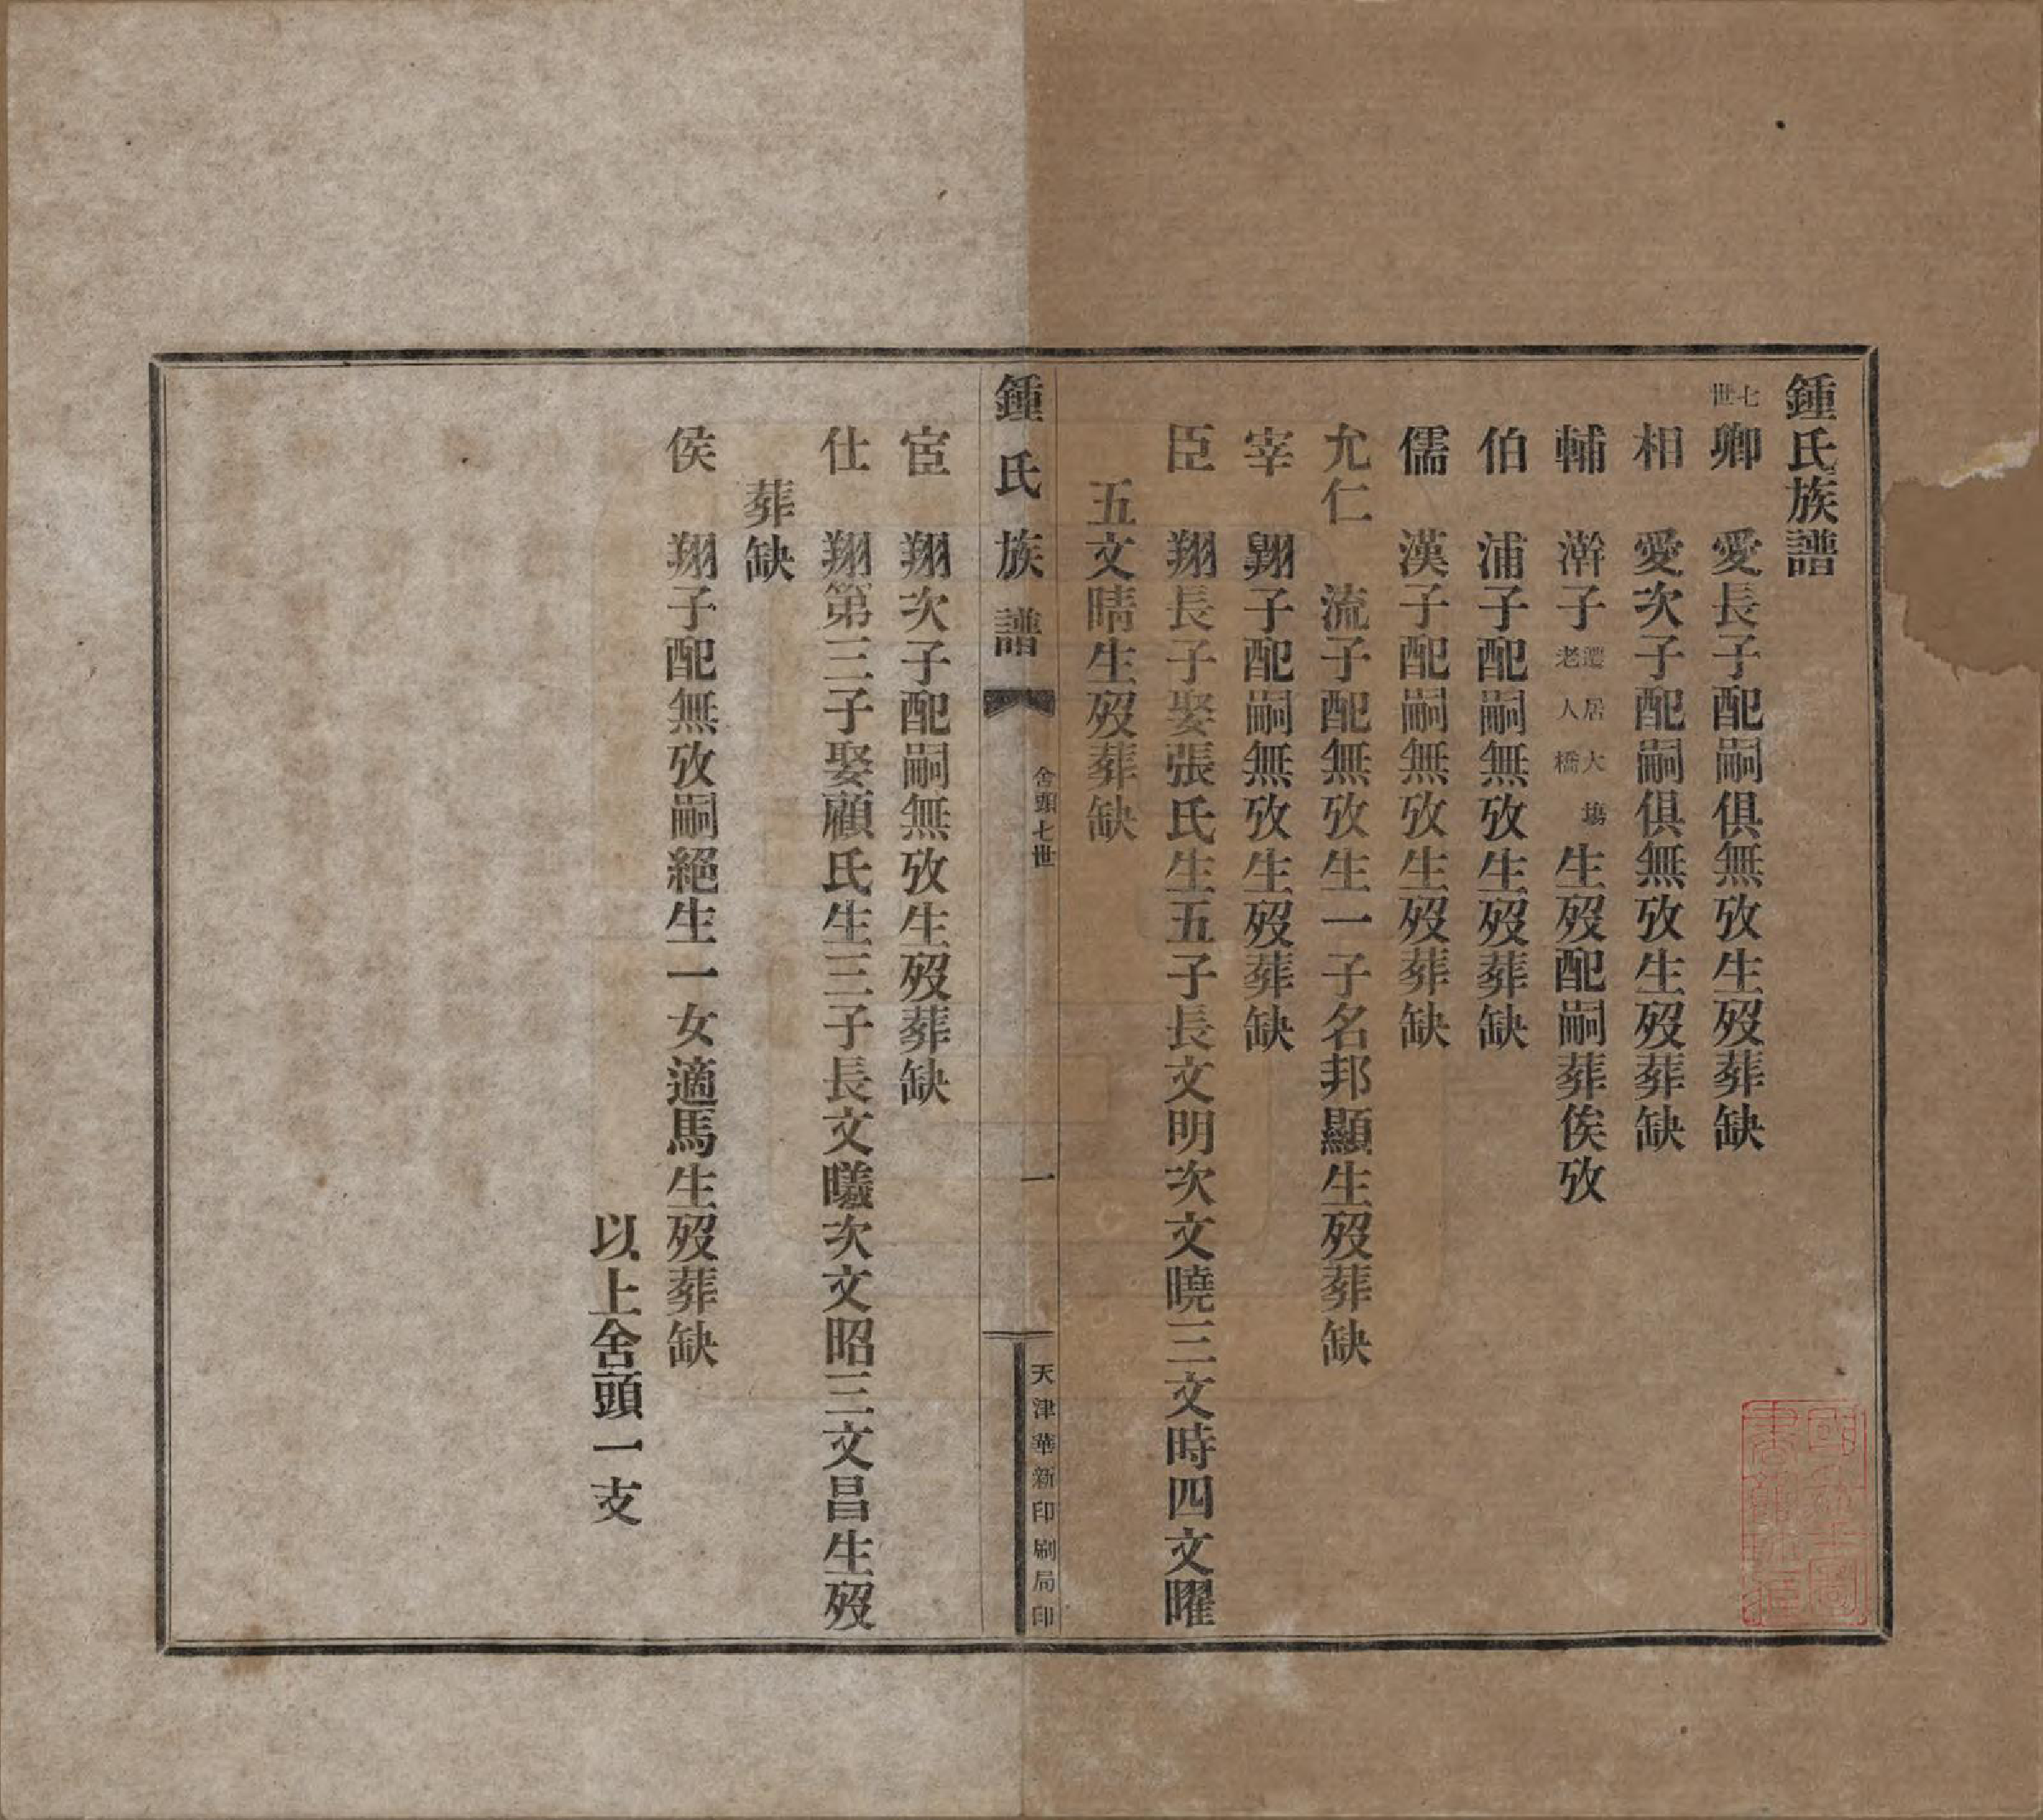 鍾氏族譜
七世
卿　愛長子配嗣俱無攷生歿葬缺
相　愛次子配嗣俱無攷生歿葬缺
輔　澣子遷居大場老人橋生歿配嗣葬俟攷
伯　浦子配嗣無攷生歿葬缺
儒　漢子配嗣無攷生歿葬缺
允仁　流子配無攷生一子名邦顯生歿葬缺
宰　翱子配嗣無攷生歿葬缺
臣　翔長子娶張氏生五子長文明次文曉三文時四文曜
五文晴生歿葬缺
鍾氏族譜
舍頭七世
一
天津華新印刷局印
宦　翔次子配嗣無攷生歿葬缺
仕　翔第三子娶顧氏生三子長文曦次文昭三文昌生歿
葬缺
侯　翔子配無攷嗣絕生一女適馬生歿葬缺
以上舍頭一支